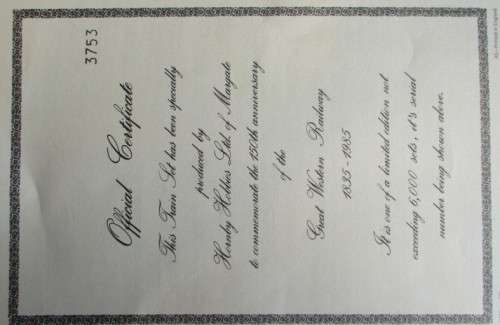 3753
Official Certificate
This Train Set has been specially
produced by
Hornby Hobbies Ltd of Margate
to commemorate the 150th anniversary
of the
Great Western Railway
1835-1985
It is one of a limited edition not
exceeding 6,000 sets, it's serial
number being shown above.